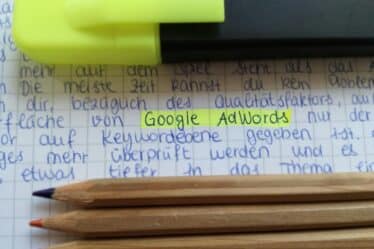 mehr auf dem Spiel steht als das A
Die meiste Zeit kannst du kein
dir, bezüglich des Qualitätsfaktors, au
rfläche von Google AdWords nur der
or auf Keywordebene gegeben ist.
ges mehr überprüft werden und es
etwas tiefer in das Thema ein